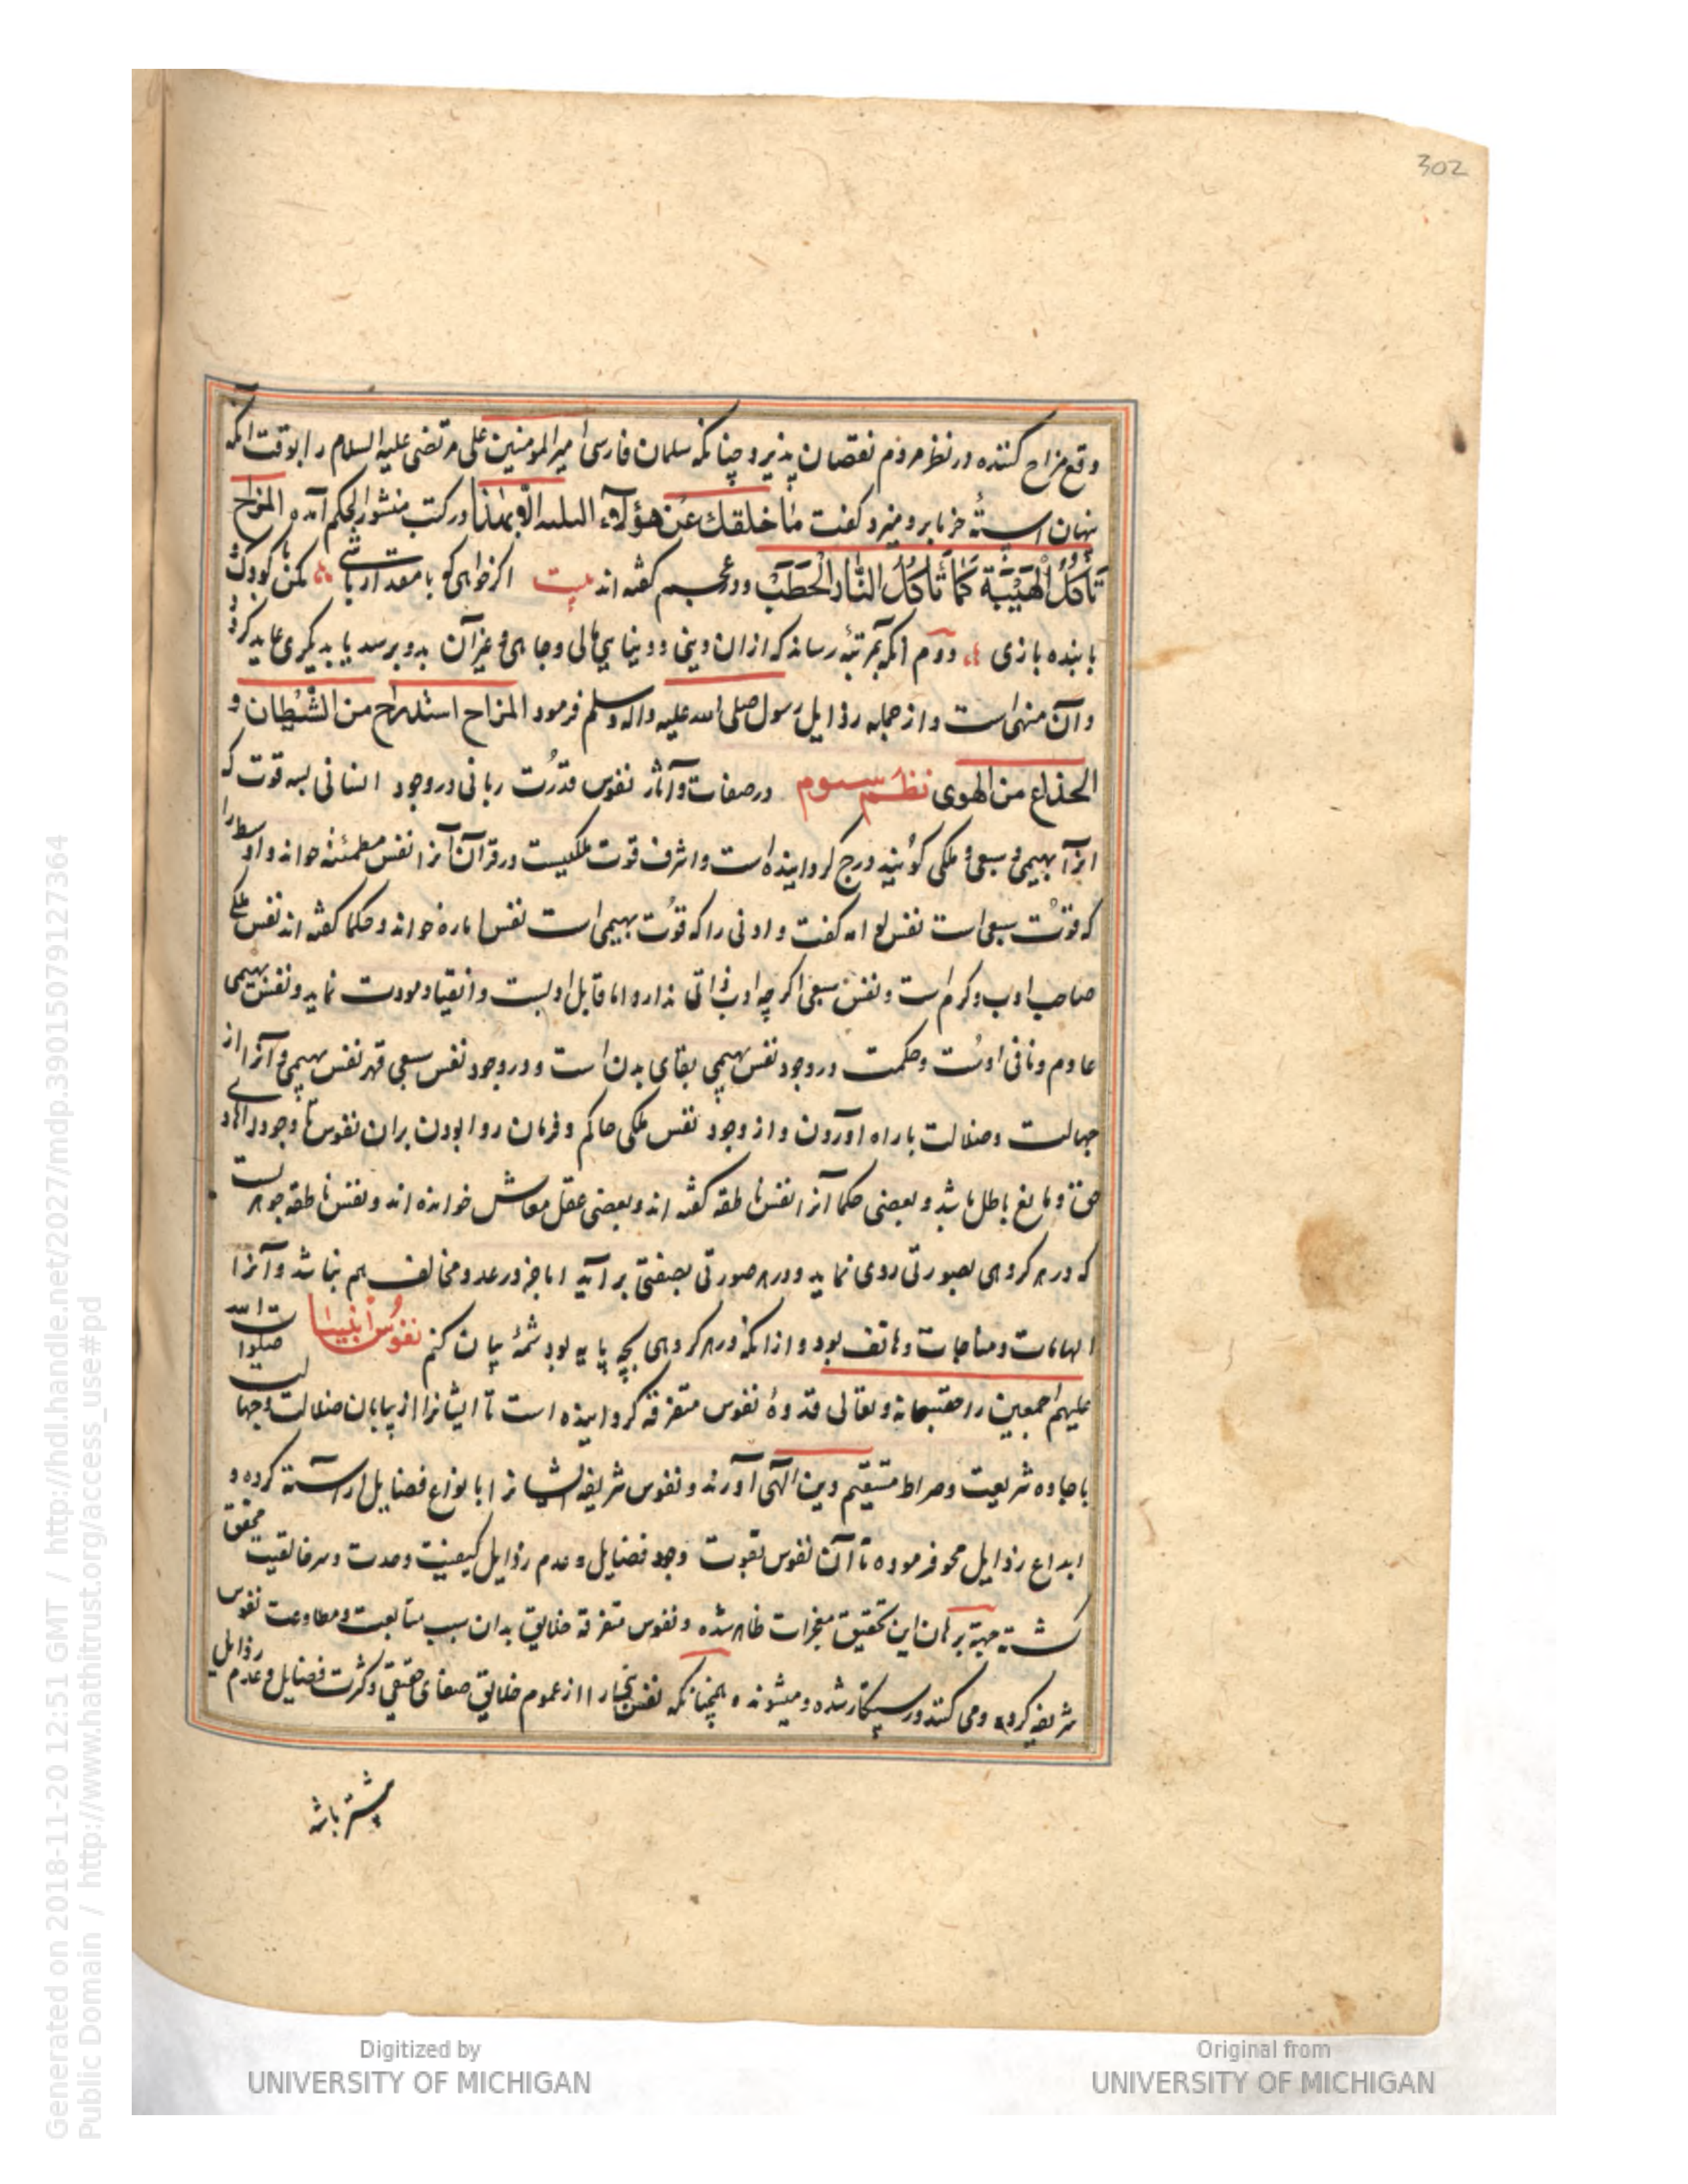 302
وقع مزاح کننده در نظر مردم نقصان پذیرد چنانکه سلمان فارسی امیر المومنین علی مرتضی علیه السلام را بوقت آنکه
پنهان استه خرما برو میزد کفت ما خلقك عن هؤلآء الا بهذا و در کتب منثور الحکم آمده المزاح
تأكل الهيبة كما تأكل النار الحطب و در عجم کفته اند بیت اکر خواهی که با مقدار باشی مکن با کودک
با بنده بازی دوم آنکه بمرتبه رساند که از ان دینی و دنیایی مالی و جاهی و غیر آن بدو برسد یا بدیکری عاید کردد
و آن منهی است و از جمله رذایل رسول صلی الله علیه واله وسلم فرمود المزاح استدراج من الشيطان و
الخداع من الهوى نظم سیوم در صفات و آثار نفوس قدرت ربانی در وجود انسانی سه قوت که
انرا بهیمی و سبعی و ملکی کویند درج کردانیده است و اشرف قوت ملکیست در قرآن آنرا نفس مطمئنه خواند و اوسط را
که قوت سبعی است نفس لوامه کفت و ادنی را که قوت بهیمی است نفس اماره خواند و حکما کفته اند نفس ملکی
صاحب ادب و کرم است و نفس سبعی اکر چه ادب ذاتی ندارد اما قابل ادبست و انقیاد مودت نماید و نفس بهیمی
عادم و نافی ادبست و حکمت در وجود نفس بهیمی بقای بدن است و در وجود نفس سبعی قهر نفس بهیمی و آنرا از
جهالت و ضلالت باراه اوردن و از وجود نفس ملکی حاکم و فرمان روا بودن بران نفوس تا وجود را هادی
حق و مانع باطل باشد و بعضی حکما آنرا نفس ناطقه کفته اند و بعضی عقل معاش خوانده اند و نفس ناطقه جوهریست
که در هر کروهی بصورتی روی نماید و در هر صورتی بصفتی بر آید اما جز در عدد مخالف هم نباشد و آنرا
الهامات و مناجات و هاتف بود و از انکه در هر کروهی بچه پایه بود شمهٔ بیان کنم نفوس انبیا صلوات الله
علیهم اجمعین را حقسبحانه و تعالی قدوهٔ نفوس متفرقه کردانیده است تا ایشانرا از بیابان ضلالت و جهالت
با جاده شریعت و صراط مستقیم دین الهی آورند و نفوس شریفه ایشانرا بانواع فضایل اراسته کرده و
ابداع رذایل محو فرموده تا آن نفوس بقوت وجود فضایل و عدم رذایل کیفیت وحدت و سر خالقیت محقق
کشته جهة برهان این تحقیق معجزات ظاهر شده و نفوس متفرقه خلایق بدان سبب متابعت و مطاوعت نفوس
شریفه کرده و می کنند و رستکار شده و میشوند و همچنانکه نفس انبیا را از عموم خلایق صفای حقیقی و کثرت فضایل و عدم رذایل
بیشتر باشد
Digitized by
UNIVERSITY OF MICHIGAN
Original from
UNIVERSITY OF MICHIGAN
Generated on 2018-11-20 12:51 GMT / http://hdl.handle.net/2027/mdp.39015079127364
Public Domain / http://www.hathitrust.org/access_use#pd